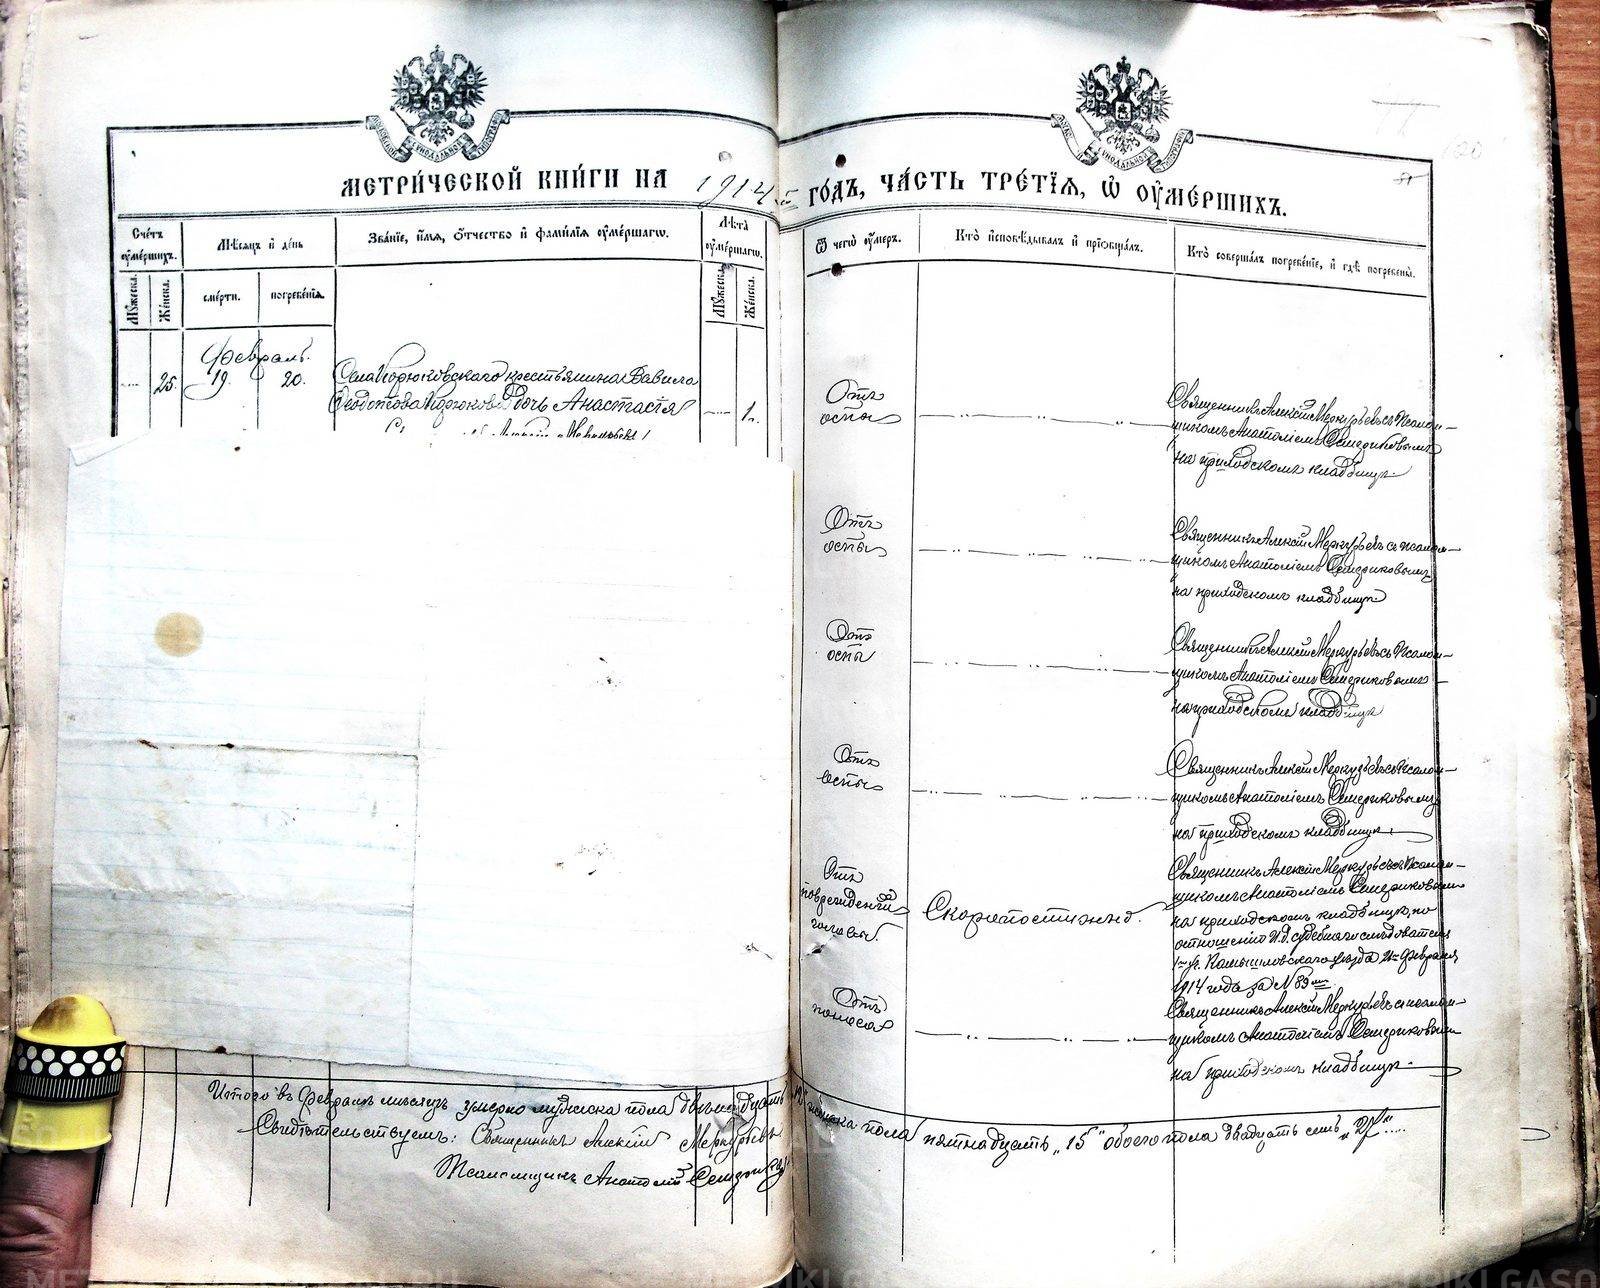 МЕТРИ́ЧЕСКОЙ КНИ́ГИ НА 1914 ГО́ДЪ, ЧА́СТЬ ТРЕ́ТІѦ, Ѡ҆ ОУ҆МЕ́РШИХЪ.
Сче́тъ оу҆ме́ршихъ.
Мѣ́сяцъ и҆ де́нь
Зва́нїе, и҆́мя, ѻ҆́тчество и҆ фами́лїя оу҆ме́ршагѡ.
Лѣ́та оу҆ме́ршагѡ.
Ѿ чегѡ̀ оу҆́меръ.
Кто̀ и҆сповѣ́дывалъ и҆ прїобща́лъ.
Кто̀ соверша́лъ погребе́нїе, и҆ гдѣ̀ погребены̀.
Мꙋ́жеска.
Же́нска.
сме́рти.
погребе́нїя.
Мꙋ́жеска.
Же́нска.
Февраль.
25. 19. 20.
Села крестьянина Вавила
дочь Анастасія 1.
Отъ
оспы
Священникъ Алексій Меркурьевъ съ псалом-
щикомъ Анатоліемъ Семериковымъ
на приходскомъ кладбищѣ.
Отъ
оспы
Священникъ Алексій Меркурьевъ съ псалом-
щикомъ Анатоліемъ Семериковымъ
на приходскомъ кладбищѣ
Отъ
оспы
Священникъ Алексій Меркурьевъ съ псалом-
щикомъ Анатоліемъ Семериковымъ
на приходскомъ кладбищѣ
Отъ
оспы
Священникъ Алексій Меркурьевъ съ псалом-
щикомъ Анатоліемъ Семериковымъ
на приходскомъ кладбищѣ.
Отъ
поврежденій
головы.
Скоропостижно.
Священникъ Алексій Меркурьевъ съ псалом-
щикомъ Анатоліемъ Семериковымъ
на приходскомъ кладбищѣ, по
отношенію И.д. судебнаго слѣдователя
Камышловскаго уѣзда февраля
1914 года за № 89
Отъ
поноса
Священникъ Алексій Меркурьевъ съ псалом-
щикомъ Анатоліемъ Семериковымъ
на приходскомъ кладбищѣ.
Итого въ Февралѣ мѣсяцѣ умерло мужеска пола двѣнадцать женска пола пятнадцать „15" обоего пола двадцать семь „27"
Свидѣтельствуемъ: Священникъ Алексій Меркурьевъ
Псаломщикъ Анатолій Семериковъ